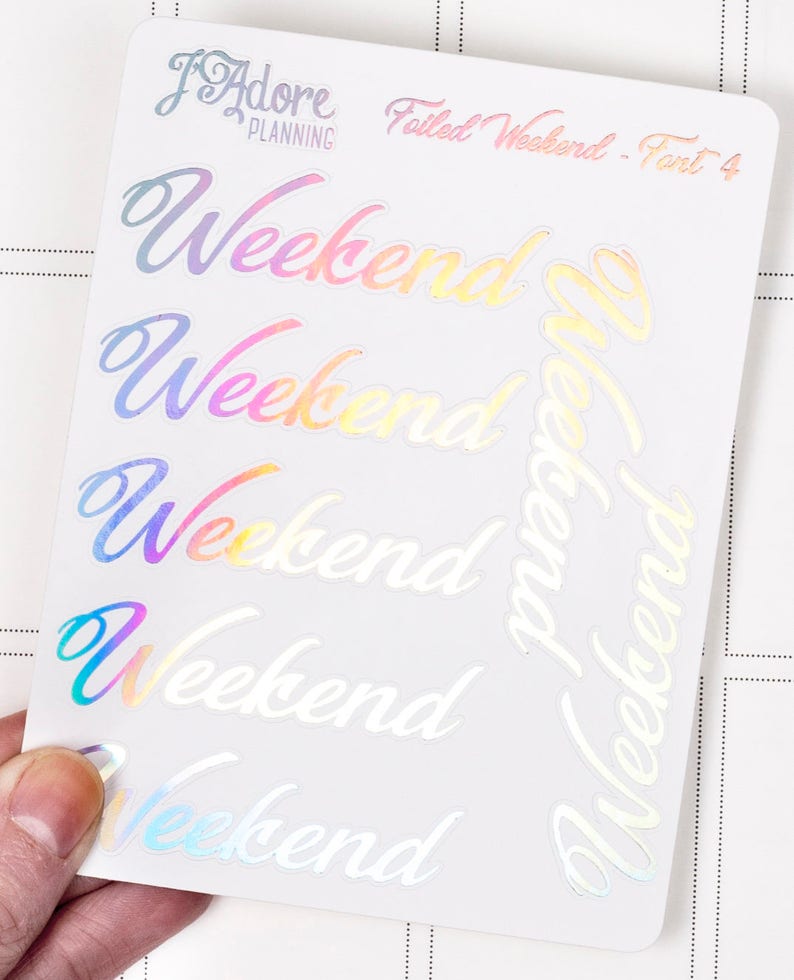 J'Adore
PLANNING
Foiled Weekend - Font 4
Weekend
Weekend
Weekend
Weekend
Weekend
Weekend
Weekend